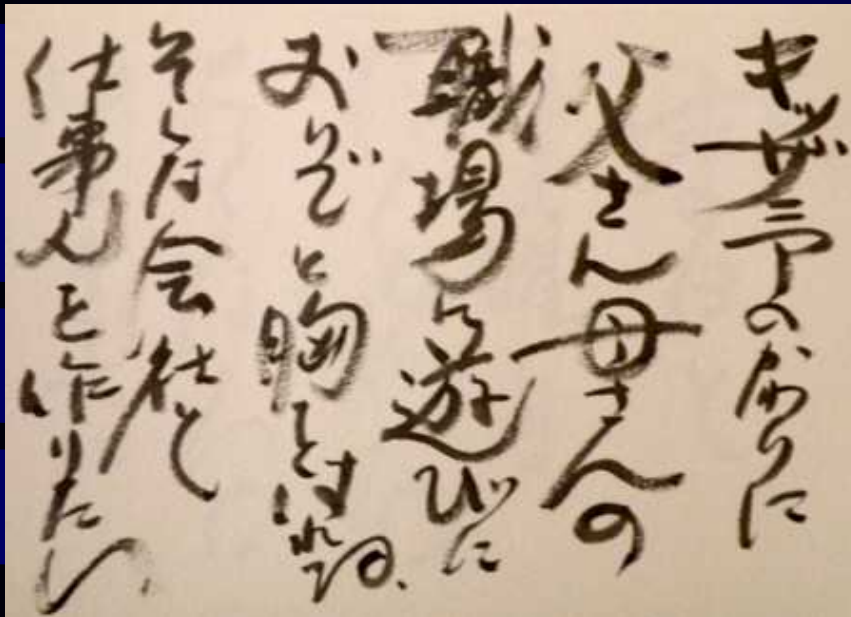 キッザニアの代りに
父さん母さんの
職場に遊びに
おいでと胸をはれる、
そんな会社と
仕事人を作りたい